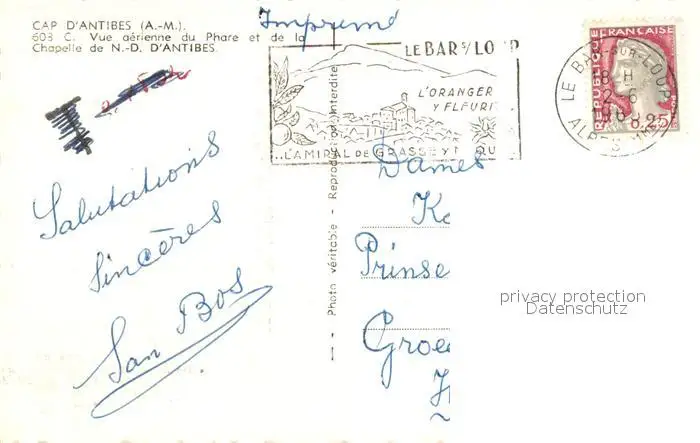 CAP D'ANTIBES (A.-M.).
603 C. Vue aérienne du Phare et de la
Chapelle de N.-D. D'ANTIBES.
Imprimé
LE BAR S/ LOUP
L'ORANGER
Y FLEURIT
L'AMIRAL DE GRASSE Y
LE BAR-SUR-LOUP
18 H
2-6
ALPES
REPUBLIQUE FRANÇAISE
0,25
Reproduction Interdite
Photo véritable
Salutations
sincères
San Bos
Dames
Ke
Prinse
Groe
privacy protection
Datenschutz